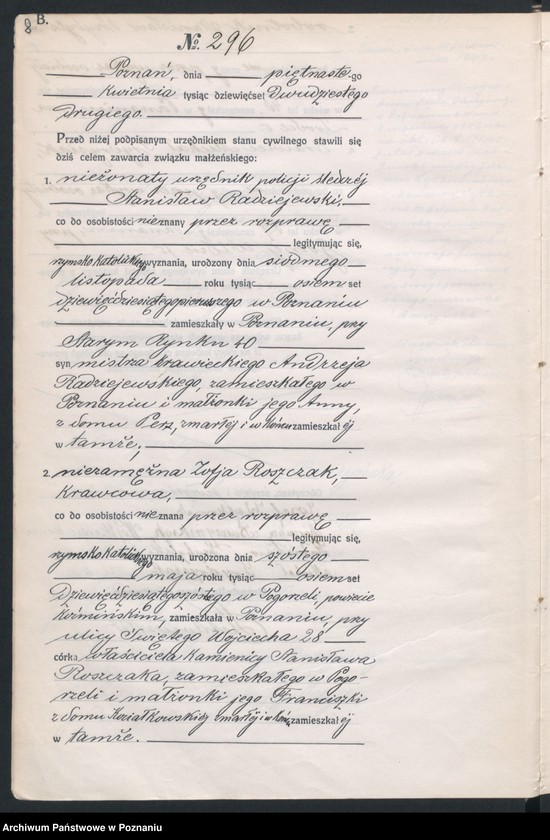 B.
8
№ 296
Poznań, dnia piętnaste-go
Kwietnia tysiąc dziewięćset Dwudziestego
drugiego.
Przed niżej podpisanym urzędnikiem stanu cywilnego stawili się
dziś celem zawarcia związku małżeńskiego:
1. nieżonaty urzędnik policji śledczej
Stanisław Radziejewski,
co do osobistości nieznany przez rozprawę
legitymując się,
rzymsko katolickiego wyznania, urodzony dnia siódmego
listopada roku tysiąc osiem set
dziewięćdziesiątego pierwszego w Poznaniu
zamieszkały w Poznaniu, przy
Starym Rynku 40
syn mistrza krawieckiego Andrzeja
Radziejewskiego, zamieszkałego w
Poznaniu i małżonki jego Anny,
z domu Perz, zmarłej i w końcu zamieszkałej
w tamże,
2. niezamężna Zofja Roszczak,
Krawcowa,
co do osobistości nieznana przez rozprawę
legitymując się,
rzymsko katolickiego wyznania, urodzona dnia szóstego
maja roku tysiąc osiem set
Dziewięćdziesiątego szóstego w Pogorzeli, powiecie
Koźmińskim, zamieszkała w Poznaniu, przy
ulicy Świętego Wojciecha 28
córka właściciela kamienicy Stanisława
Roszczaka, zamieszkałego w Pogo-
rzeli i małżonki jego Franciszki
z domu zmarłej i w końc. zamieszkałej
w tamże.
Archiwum Państwowe w Poznaniu